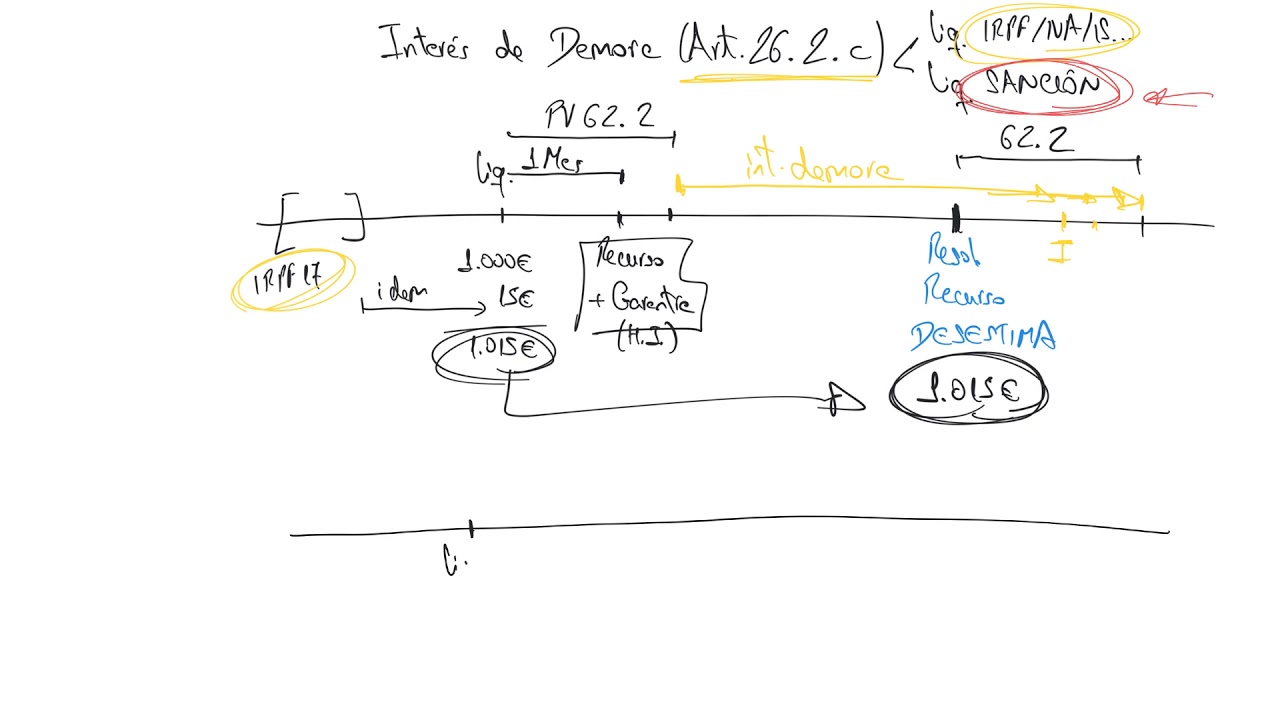 Interés de Demora (Art. 26.2.c) <
liq. IRPF/IVA/IS...
liq. SANCIÓN
PV 62.2
62.2
liq. 1 Mes
int. demora
IRPF 17
i dem
1.000€
15€
1.015€
Recurso
+ Garantía
(H.I.)
Resol.
Recurso
DESESTIMA
1.015€
I
li.